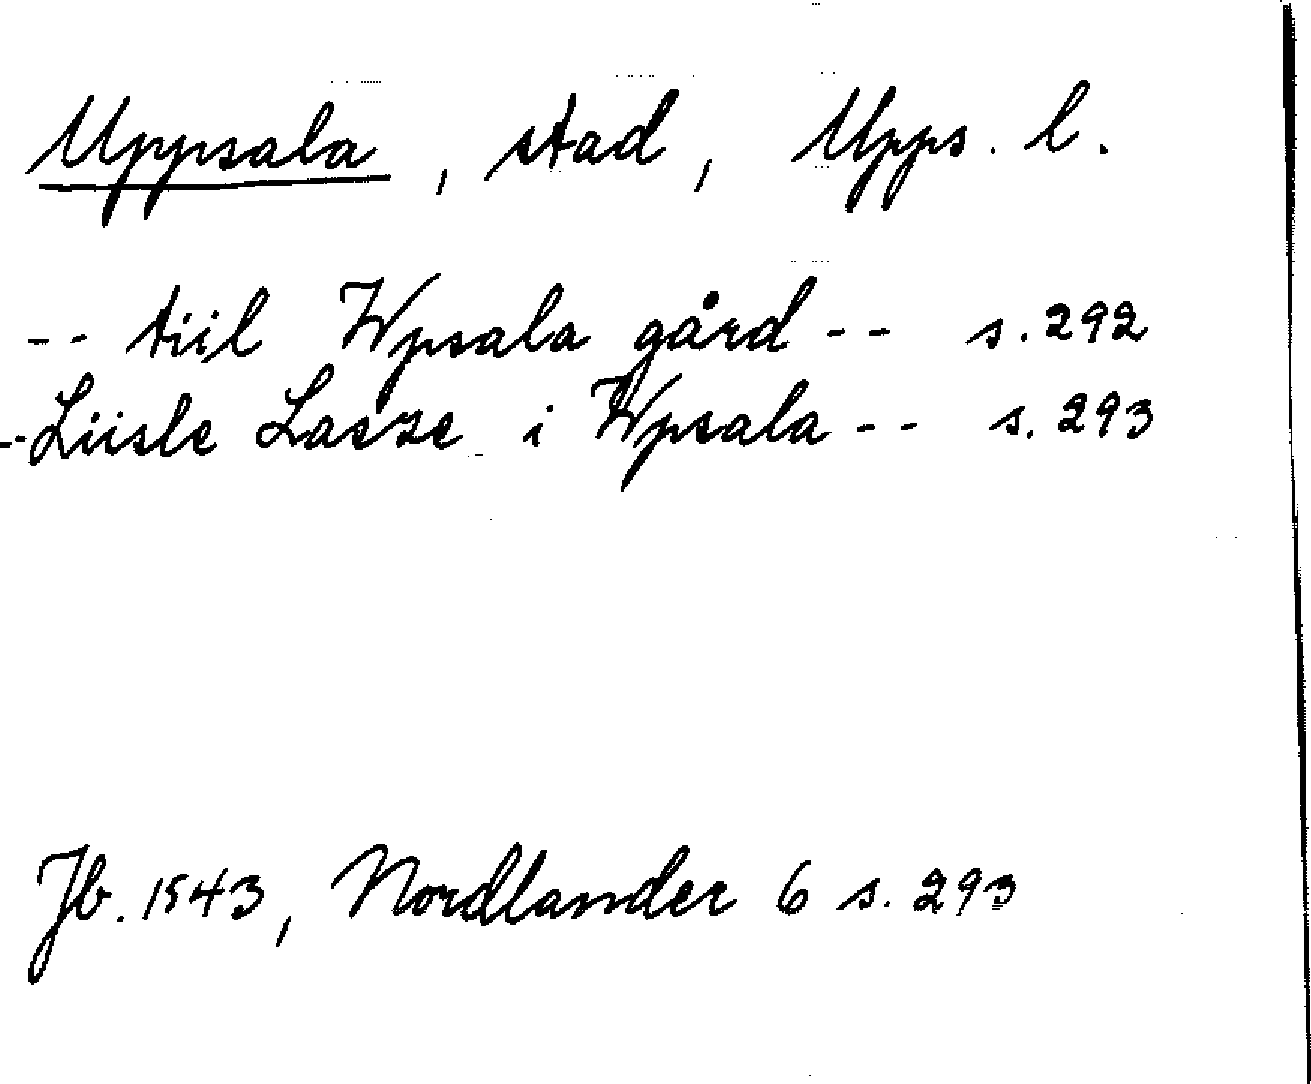 Uppsala, stad, Upps. l.
-- tiil Wpsala gård -- s. 292
-- Liisle Lasze i Wpsala -- s. 293
Jb. 1543, Nordlander 6 s. 293